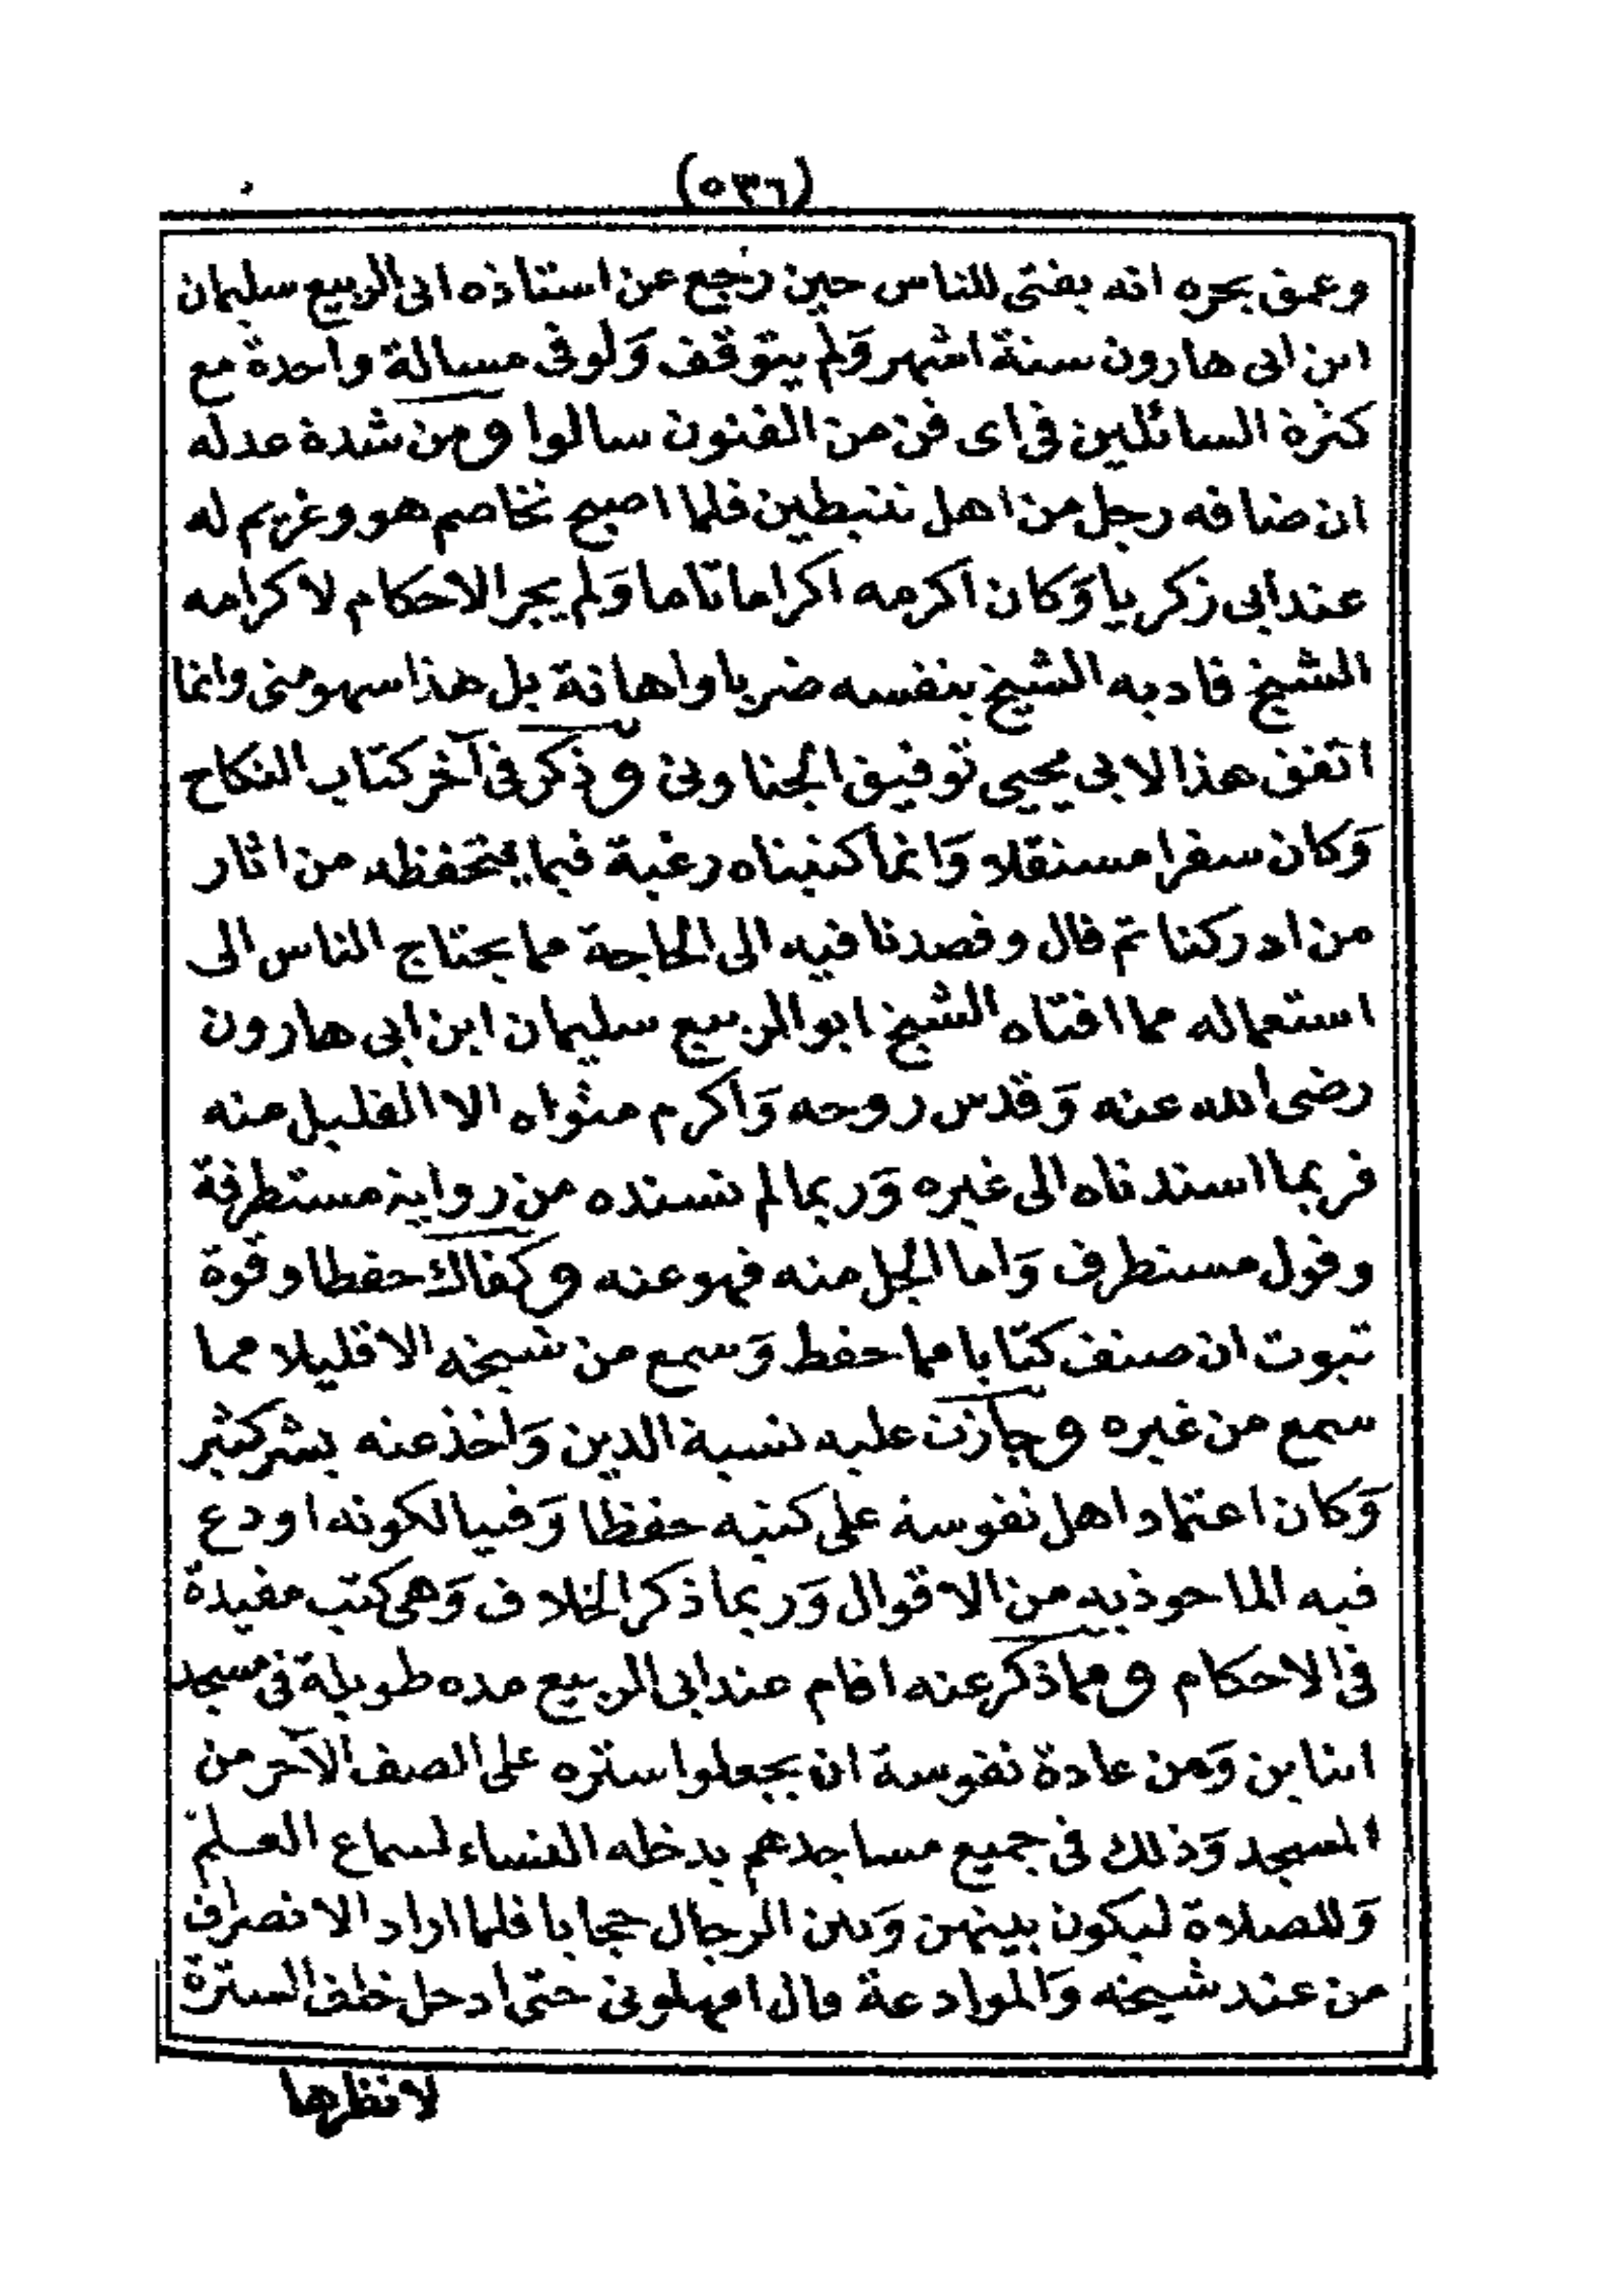 (٥٣٦)
وعمق بحره انه يفتى للناس حين رجع عن استاذه ابى الربيع سليمان
ابن ابى هارون ستة اشهر وَلم يتوقف وَلو فى مسالة واحدة مع
كثرة السائلين فى اى فن من الفنون سالوا ومن شدة عدله
ان ضافه رجل من اهل تنبطين فلما اصبح تخاصم هو وغريم له
عند ابى زكريا وَكان اكرمه اكراما تاما وَلم يجر الاحكام لاكرامه
الشيخ فادبه الشيخ بنفسه ضربا واهانة بل هذا سهو منى وانما
اتفق هذا لابى يحيى توفيق الجناونى وذكر فى آخر كتاب النكاح
وَكان سفرا مستقلا وَانما كتبناه رغبة فيما يتحفظه من اثار
من ادركنا ثم قال وقصدنا فيه الى الحاجة مما يحتاج الناس الى
استعماله مما افتاه الشيخ ابو الربيع سليمان ابن ابى هارون
رضى الله عنه وَقدس روحه وَاكرم مثواه الا القليل منه
فربما اسندناه الى غيره وَربما لم نسنده من رواية مستطرفة
وقول مستطرف وَاما الجل منه فهو عنه وكفاك حفظا وقوة
ثبوت ان صنف كتابا مما حفظ وَسمع من شيخه الا قليلا مما
سمع من غيره وجازت عليه نسبة الدين وَاخذ عنه بشر كثير
وَكان اعتماد اهل نفوسة على كتبه حفظا وَفتيا لكونه اودع
فيه الماخوذ به من الاقوال وَربما ذكر الخلاف وَهى كتب مفيدة
فى الاحكام ومما ذكر عنه اقام عند ابى الربيع مده طويلة فى مسجد
ابناين وَمن عادة نفوسة ان يجعلوا ستره على الصف الآخر من
المسجد وَذلك فى جميع مساجدهم يدخله النساء لسماع العلم
وَللصلاة ليكون بينهن وَبين الرجال حجابا فلما اراد الانصراف
من عند شيخه وَالموادعة قال امهلونى حتى ادخل خلف السترة
لانظرها